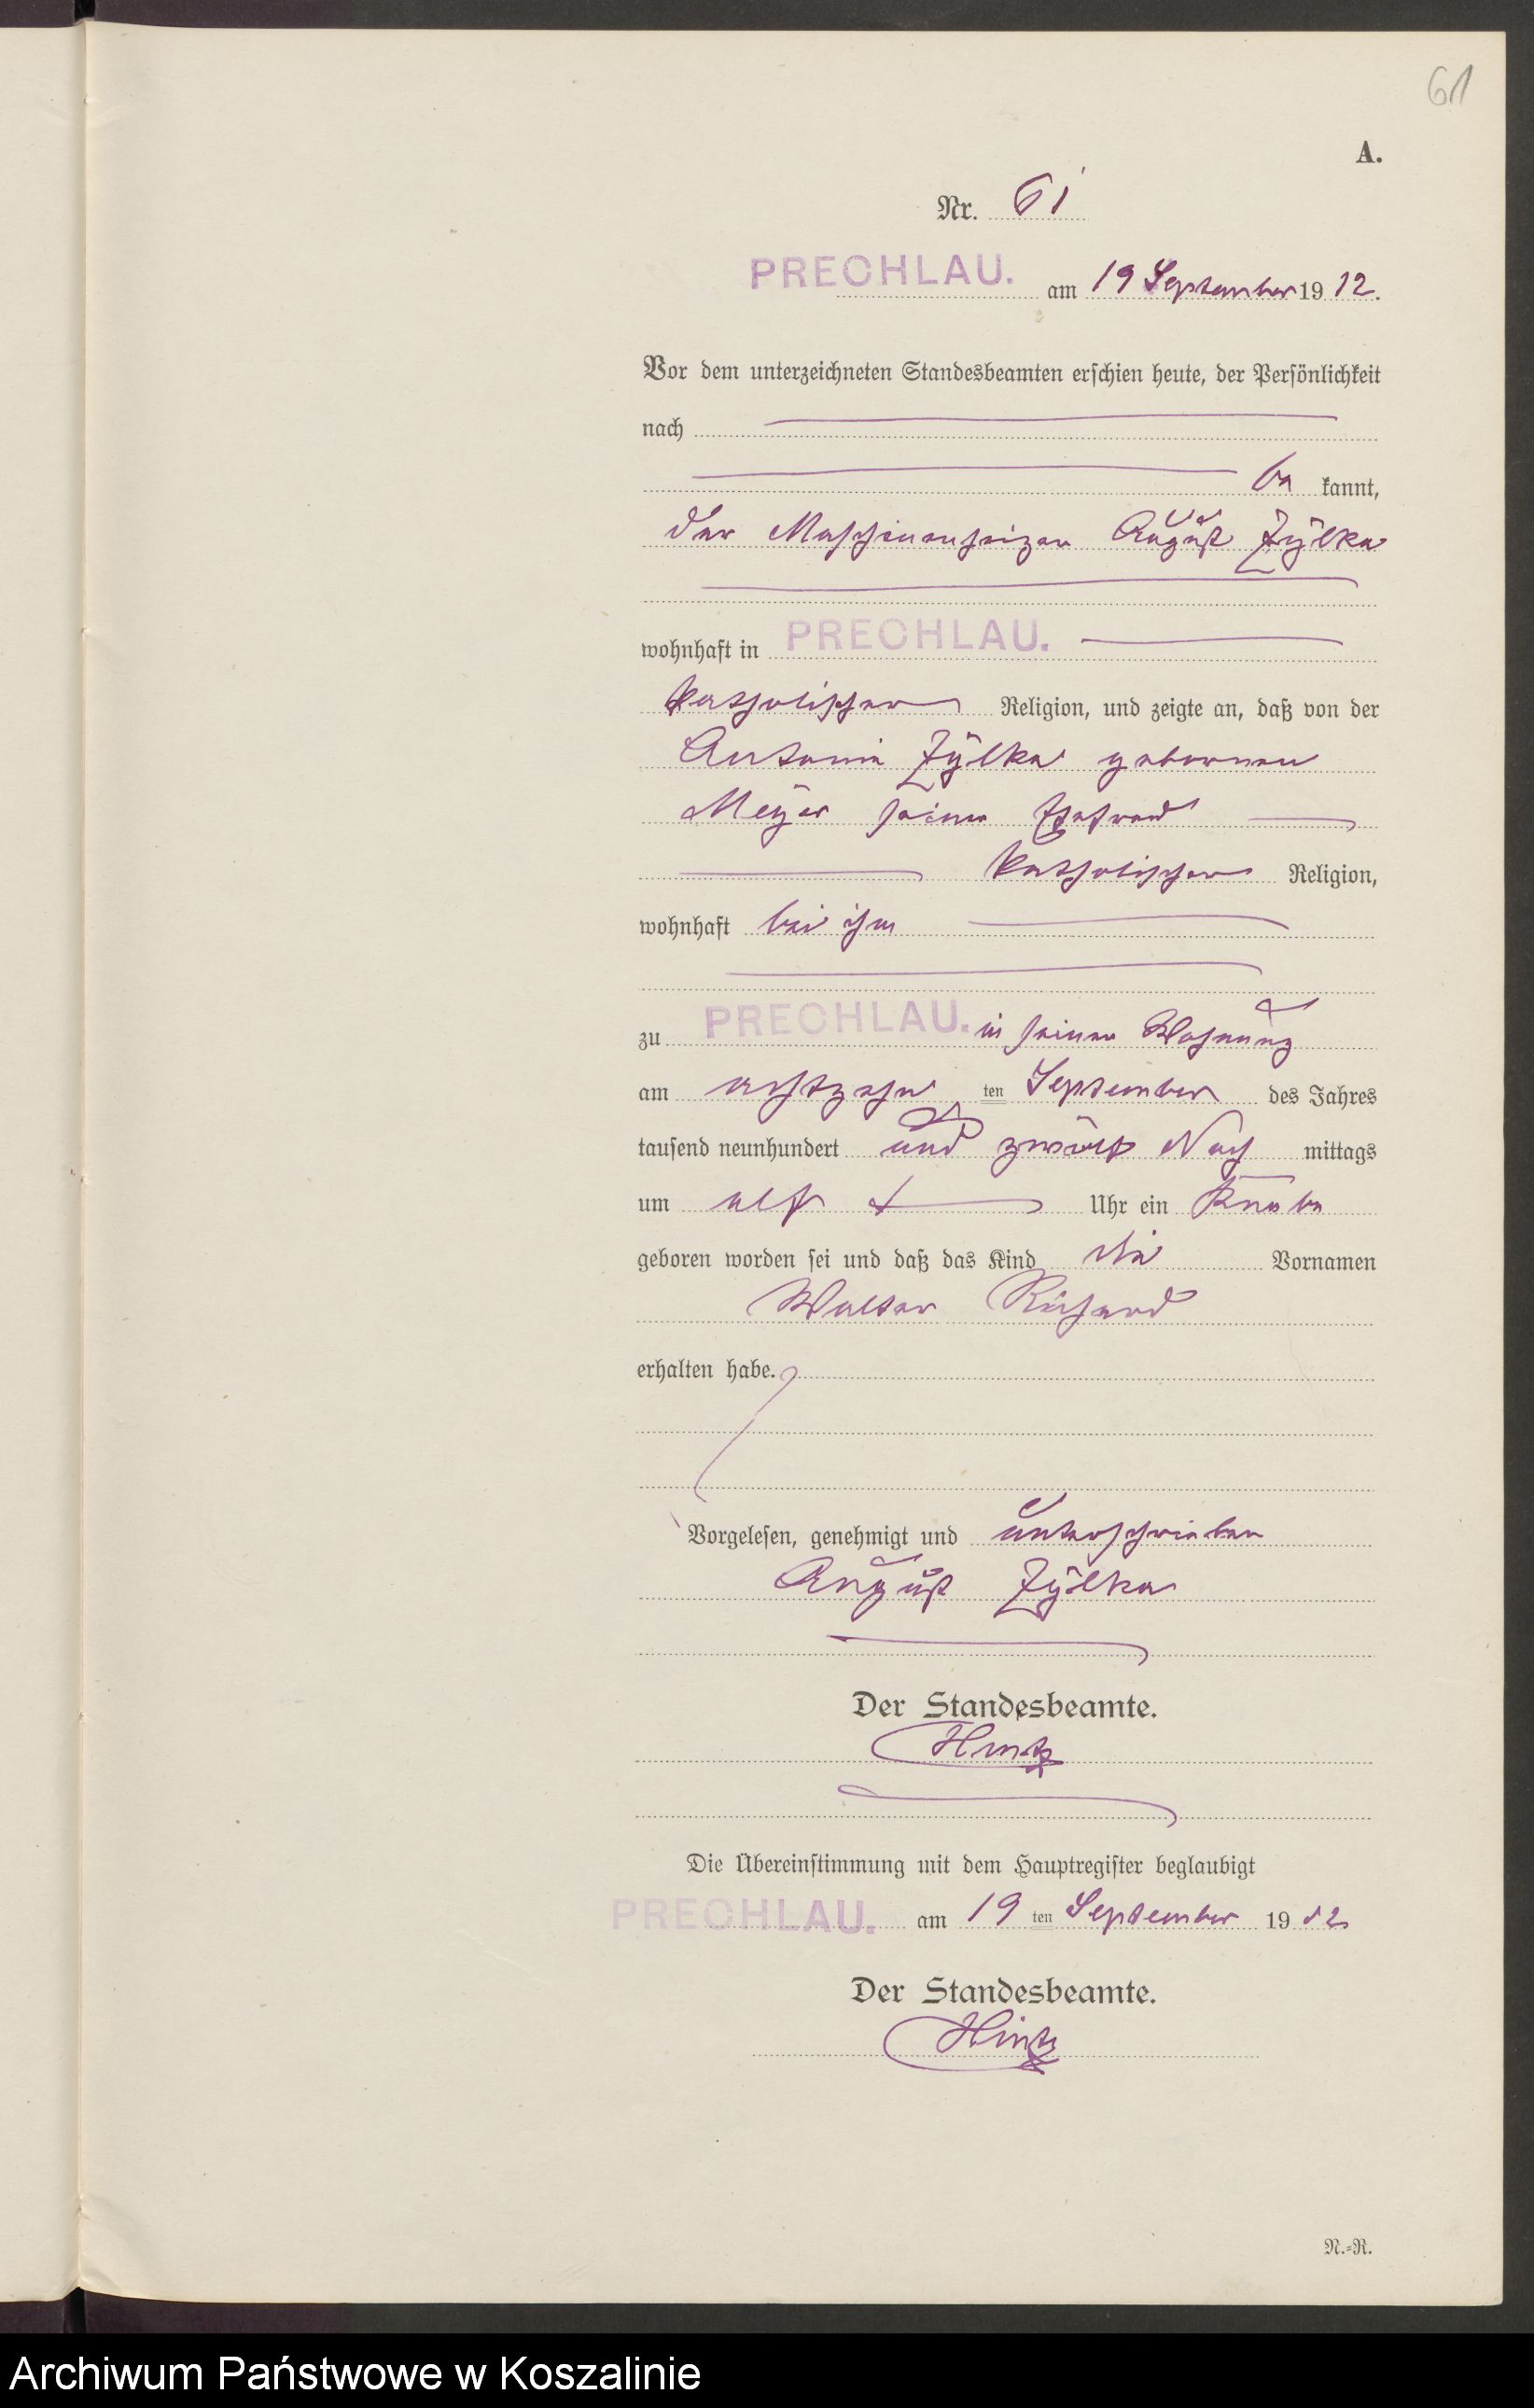 61
A.
Nr. 61
PRECHLAU. am 19 September 1912.
Vor dem unterzeichneten Standesbeamten erschien heute, der Persönlichkeit
nach
be kannt,
der Maschinenheizer August Zylka
wohnhaft in PRECHLAU.
katholischer Religion, und zeigte an, daß von der
Antonie Zylka geborenen
Meyer seiner Ehefrau
katholischer Religion,
wohnhaft bei ihm
zu PRECHLAU. in seiner Wohnung
am achtzehn ten September des Jahres
tausend neunhundert und zwölf Nach mittags
um elf Uhr ein Knabe
geboren worden sei und daß das Kind die Vornamen
Walter Richard
erhalten habe.
Vorgelesen, genehmigt und unterschrieben
August Zylka
Der Standesbeamte.
Hintz
Die Übereinstimmung mit dem Hauptregister beglaubigt
PRECHLAU. am 19 ten September 1912
Der Standesbeamte.
Hintz
N.=R.
Archiwum Państwowe w Koszalinie